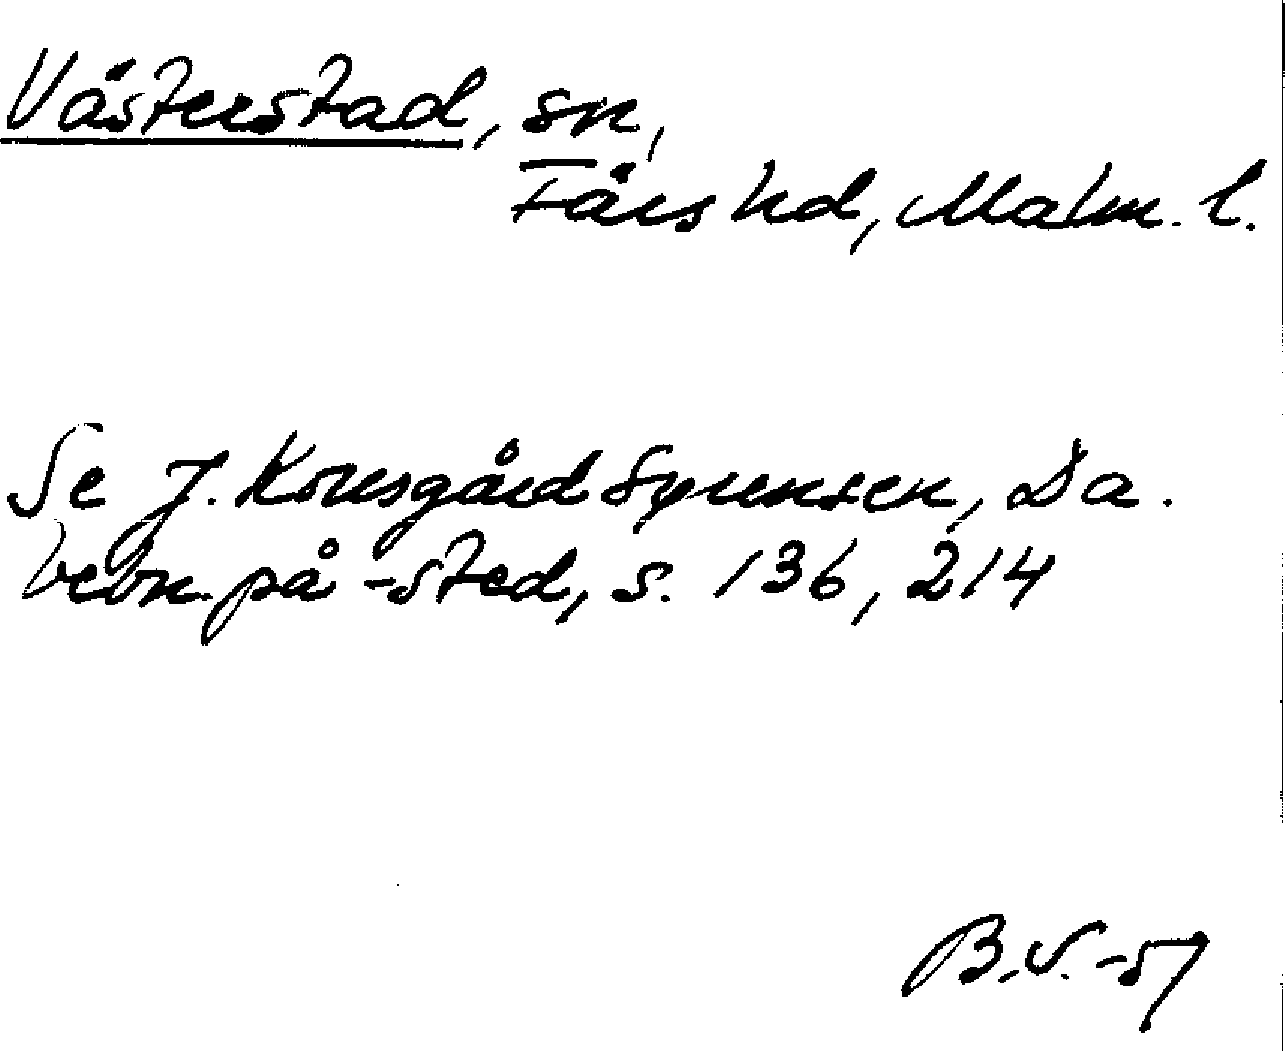 Västerstad, sn,
Färs hd, Malm. l.
Se J. Kousgård Sørensen, Da.
bebn. på -sted, s. 136, 214
B.V. -57